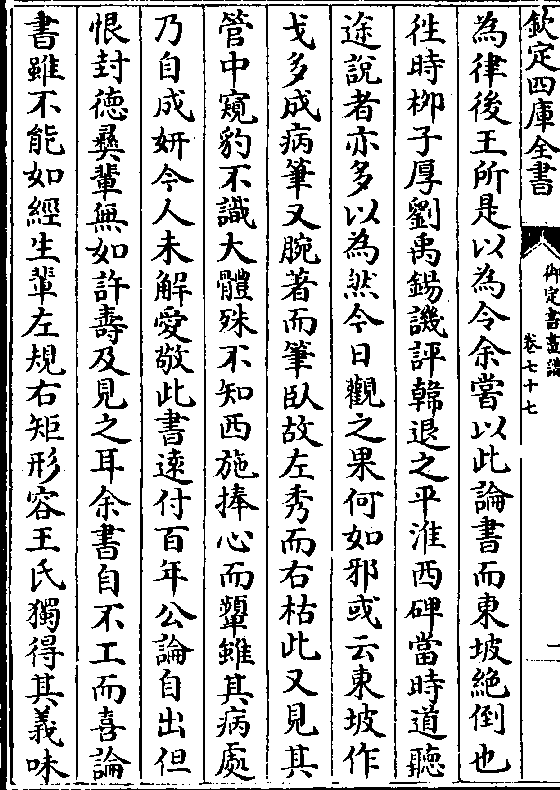 欽定四庫全書
御定書畫譜
卷七十七
一
為律後王所是以為令余嘗以此論書而東坡絶倒也
徃時栁子厚劉禹錫譏評韓退之平淮西碑當時道聽
途說者亦多以為然今日觀之果何如邪或云東坡作
戈多成病筆又腕著而筆臥故左秀而右枯此又見其
管中窺豹不識大體殊不知西施捧心而顰雖其病處
乃自成妍今人未解愛敬此書逺付百年公論自出但
恨封德彞輩無如許壽及見之耳余書自不工而喜論
書雖不能如經生輩左規右矩形容王氏獨得其義味